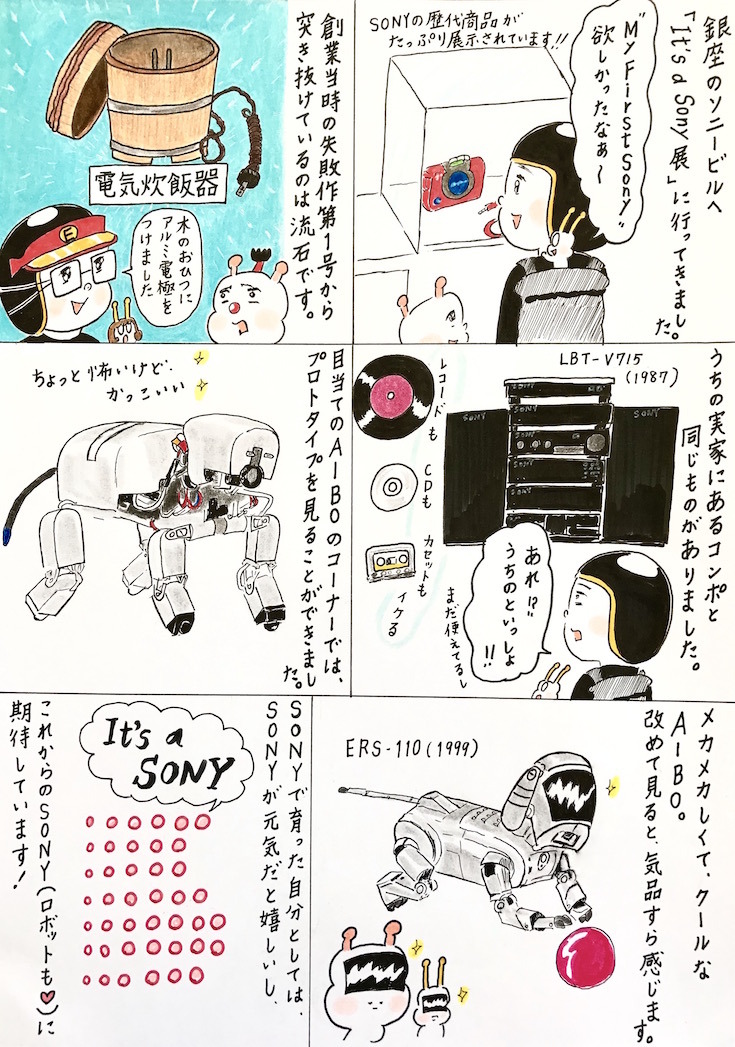 銀座のソニービルへ
「It's a Sony展」に行ってきました。
SONYの歴代商品が
たっぷり展示されています!!
"My First Sony"
欲しかったなぁ〜
創業当時の失敗作第1号から
突き抜けているのは流石です。
電気炊飯器
木のおひつに
アルミ電極を
つけました
うちの実家にあるコンポと
同じものがありました。
LBT-V715
(1987)
SONY
SONY
SONY
レコードも
CDも
カセットも
イケる
まだ使えてるし
あれ!?
うちのといっしょ
!!
目当てのAIBOのコーナーでは、
プロトタイプを見ることができました。
ちょっと怖いけど、
かっこいい
メカメカしくて、クールな
AIBO。
改めて見ると、気品すら感じます。
ERS-110(1999)
SONYで育った自分としては、
SONYが元気だと嬉しいし、
It's a
SONY
これからのSONY(ロボットも♥)に
期待しています!